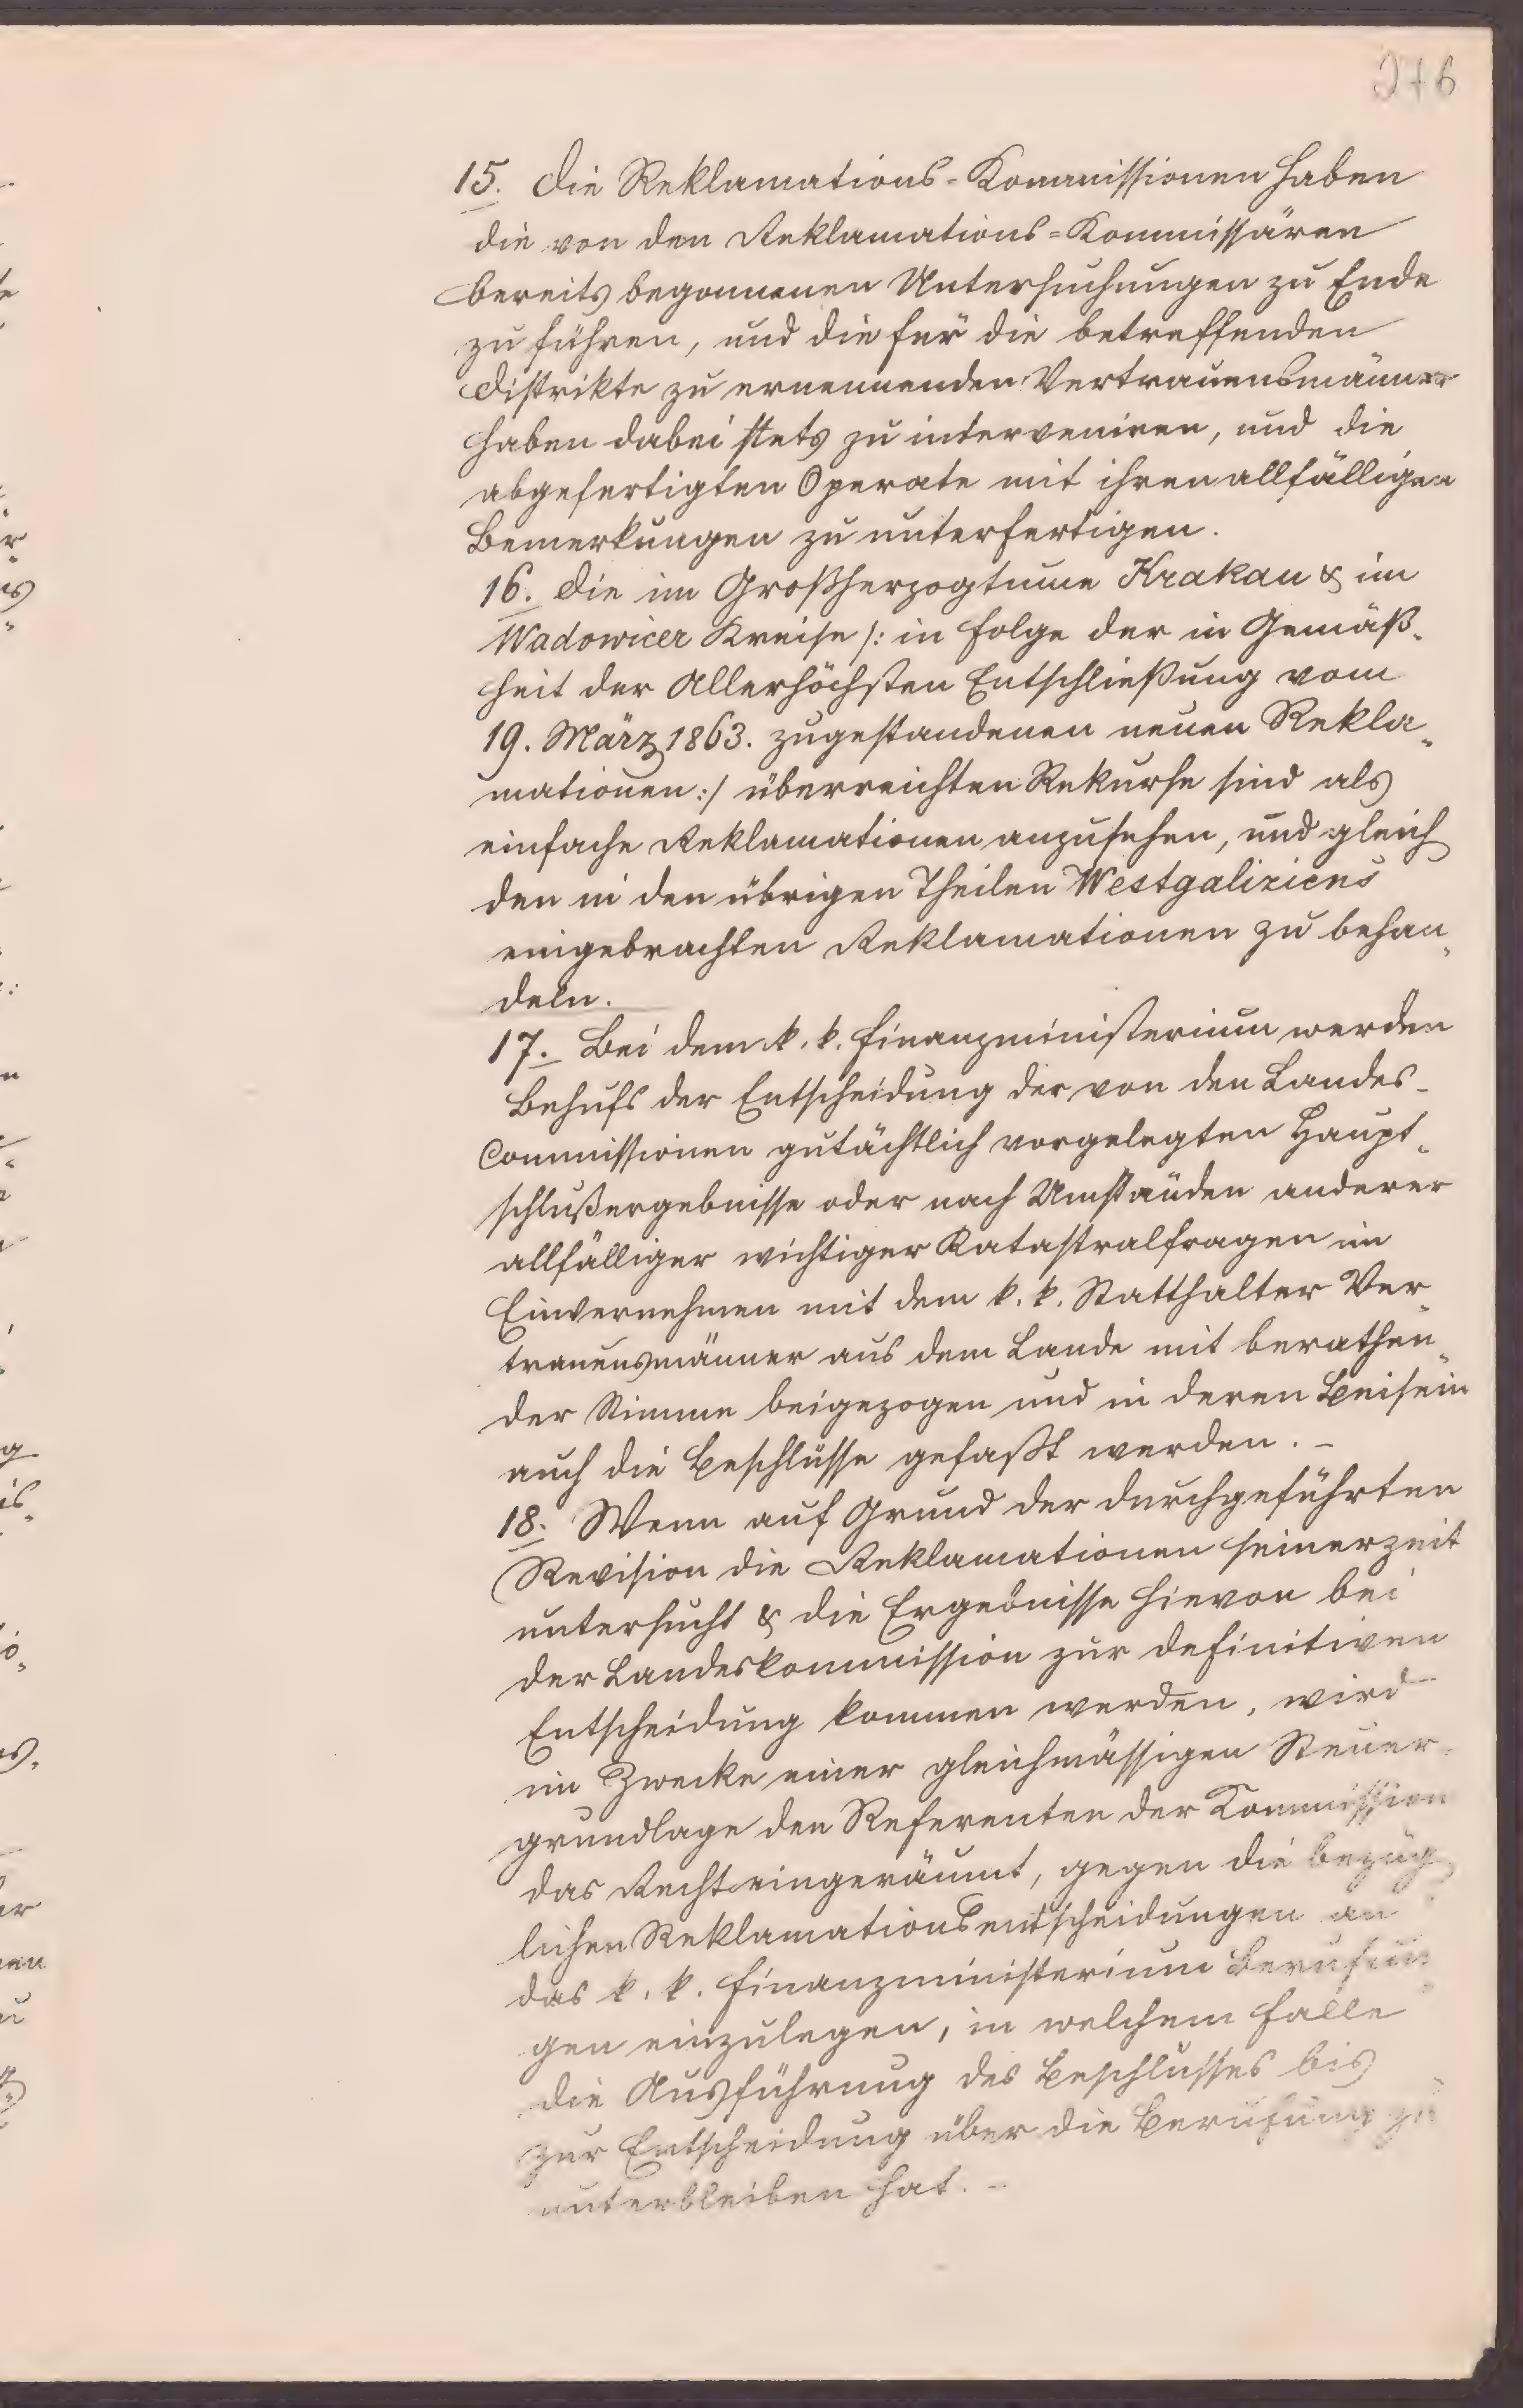 276
15. Die Reklamations=Kommissionen haben
die von den Reklamations=Kommissären
bereits begonnenen Untersuchungen zu Ende
zu führen, und die für die betreffenden
Distrikte zu ernennenden Vertrauensmänner
haben dabei stets zu interveniren, und die
abgefertigten Operate mit ihren allfälligen
Bemerkungen zu unterfertigen.
16. Die im Großherzogtume Krakau & im
Wadowicer Kreise /: in Folge der in Gemäß„
heit der Allerhöchsten Entschließung vom
19. März 1863. zugestandenen neuen Rekla„
mationen :/ überreichten Rekurse sind als
einfache Reklamationen anzusehen, und gleich
den in den übrigen Theilen Westgaliziens
eingebrachten Reklamationen zu behan„
deln.
17. Bei dem k. k. Finanzministerium werden
Behufs der Entscheidung der von den Landes-
Commissionen gutächtlich vorgelegten Haupt„
schlußergebnisse oder nach Umständen anderer
allfälliger wichtiger Katastralfragen im
Einvernehmen mit dem k. k. Statthalter Ver„
trauensmänner aus dem Lande mit berathen„
der Stimme beigezogen und in deren Beisein
auch die Beschlüsse gefaßt werden. –
18. Wenn auf Grund der durchgeführten
Revision die Reklamationen seinerzeit
untersucht & die Ergebnisse hievon bei
der Landeskommission zur definitiven
Entscheidung kommen werden, wird
im Zwecke einer gleichmässigen Steuer„
grundlage den Referenten der Kommission
das Recht eingeräumt, gegen die bezüg„
lichen Reklamationsentscheidungen an
das k. k. Finanzministerium Berufun„
gen einzulegen, in welchem Falle
die Ausführung des Beschlusses bis
zur Entscheidung über die Berufung zu
unterbleiben hat. –